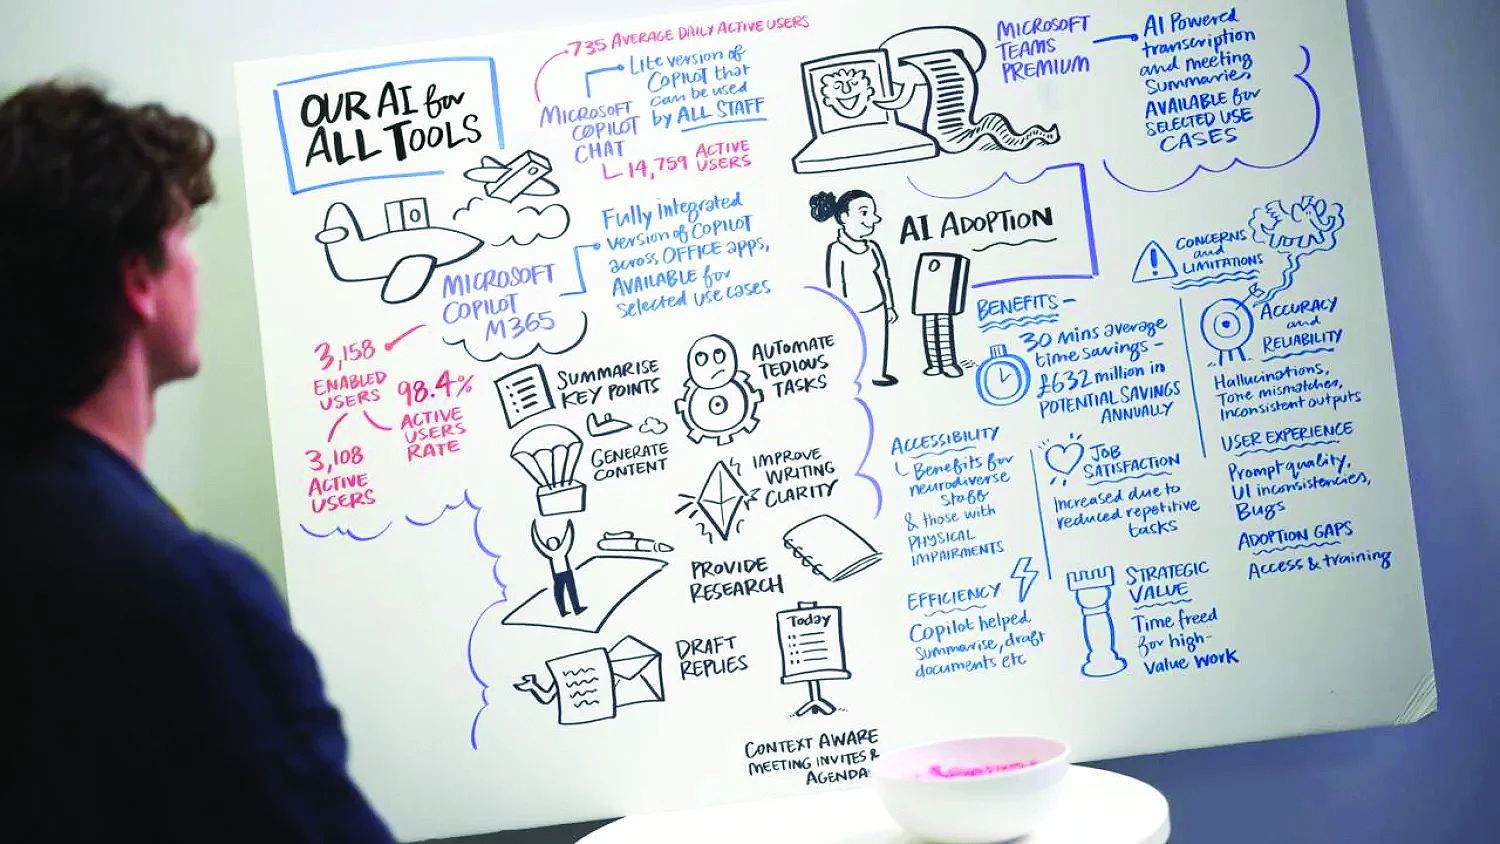 OUR AI for
ALL TOOLS
735 AVERAGE DAILY ACTIVE USERS
MICROSOFT
COPILOT
CHAT
Lite version of
COPILOT that
can be used
by ALL STAFF
14,759 ACTIVE
USERS
MICROSOFT
COPILOT
M365
Fully integrated
version of COPILOT
across OFFICE apps,
AVAILABLE for
Selected use cases
3,158
ENABLED
USERS
98.4%
ACTIVE
USERS
RATE
3,108
ACTIVE
USERS
SUMMARISE
KEY POINTS
AUTOMATE
TEDIOUS
TASKS
GENERATE
CONTENT
IMPROVE
WRITING
CLARITY
PROVIDE
RESEARCH
DRAFT
REPLIES
Today
CONTEXT AWARE
MEETING INVITES &
AGENDA
MICROSOFT
TEAMS
PREMIUM
AI Powered
transcription
and meeting
Summaries
AVAILABLE for
SELECTED USE
CASES
AI ADOPTION
BENEFITS –
30 mins average
time savings –
£632 million in
POTENTIAL SAVINGS
ANNUALLY
ACCESSIBILITY
Benefits for
neurodiverse
staff
& those with
PHYSICAL
IMPAIRMENTS
JOB
SATISFACTION
Increased due to
reduced repetitive
tasks
EFFICIENCY
Copilot helped
summarise, draft
documents etc
STRATEGIC
VALUE
Time freed
for high-
value work
CONCERNS
and
LIMITATIONS
ACCURACY
and
RELIABILITY
Hallucinations,
Tone mismatches,
Inconsistent outputs
USER EXPERIENCE
Prompt quality,
UI inconsistencies,
Bugs
ADOPTION GAPS
Access & training